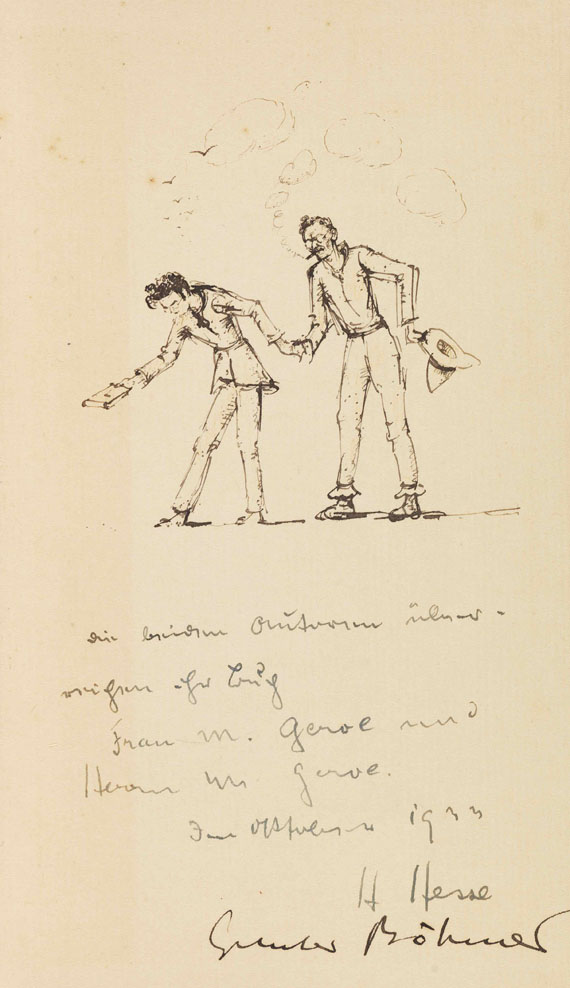 die beiden Autoren über-
reichen ihr Buch
Frau M. Geroe und
Herrn M. Geroe.
Im Oktober 1933
H Hesse
Gunter Böhmer